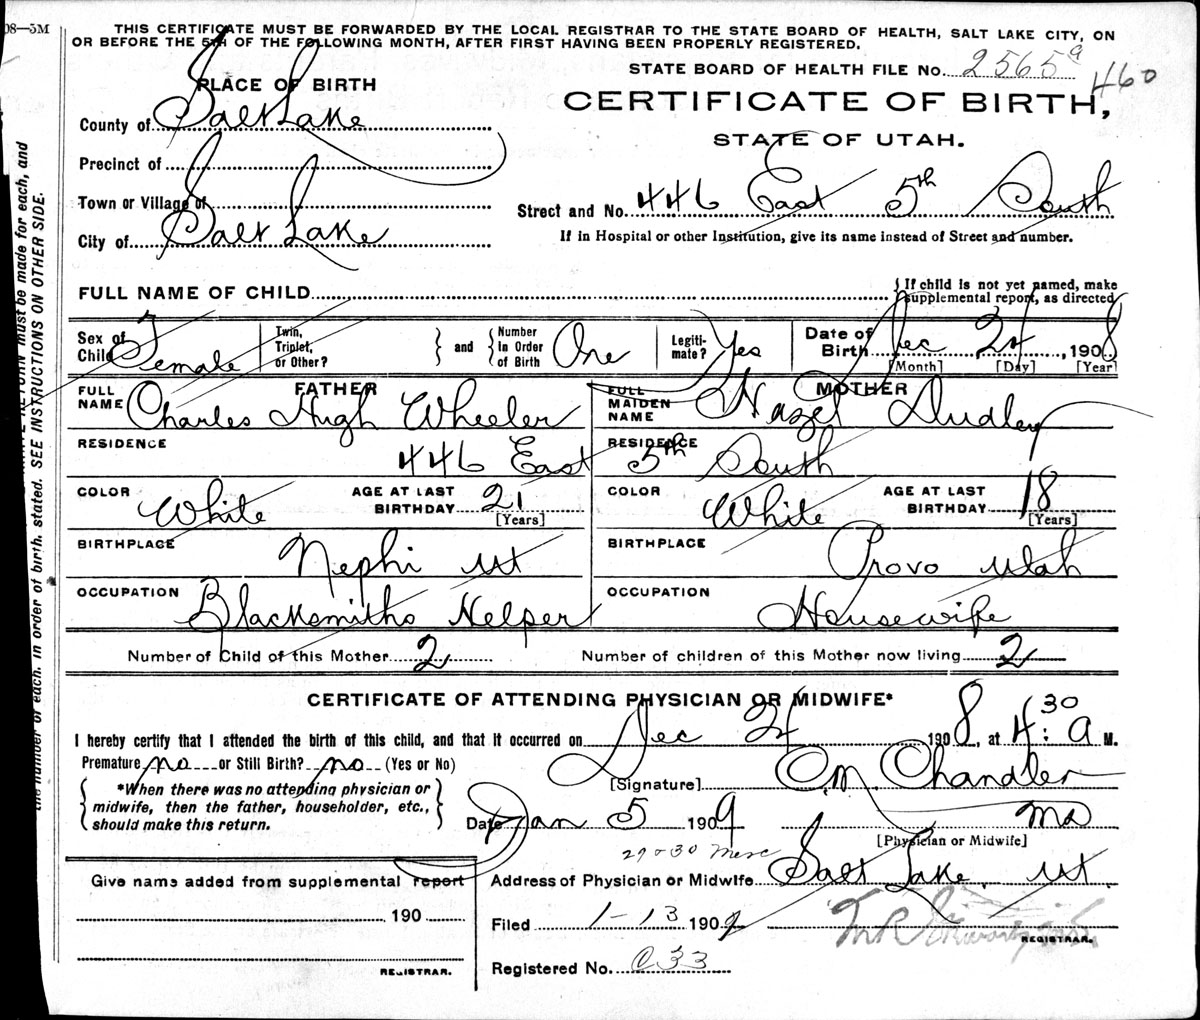 08—5M
THIS CERTIFICATE MUST BE FORWARDED BY THE LOCAL REGISTRAR TO THE STATE BOARD OF HEALTH, SALT LAKE CITY, ON
OR BEFORE THE 5TH OF THE FOLLOWING MONTH, AFTER FIRST HAVING BEEN PROPERLY REGISTERED.
STATE BOARD OF HEALTH FILE No. 2565 a 460
PLACE OF BIRTH
CERTIFICATE OF BIRTH,
STATE OF UTAH.
County of Salt Lake
Precinct of
Town or Village of
City of Salt Lake
Street and No. 446 East 5th South
If in Hospital or other Institution, give its name instead of Street and number.
FULL NAME OF CHILD
If child is not yet named, make
supplemental report, as directed
Sex of Child Female
Twin, Triplet, or Other?
and
Number In Order of Birth One
Legitimate? Yes
Date of Birth Dec 24, 1908
[Month] [Day] [Year]
FATHER
FULL NAME Charles Hugh Wheeler
MOTHER
FULL MAIDEN NAME Hazel Dudley
RESIDENCE 446 East 5th South
RESIDENCE
COLOR White
AGE AT LAST BIRTHDAY 21 [Years]
COLOR White
AGE AT LAST BIRTHDAY 18 [Years]
BIRTHPLACE Nephi Ut
BIRTHPLACE Provo Utah
OCCUPATION Blacksmiths Helper
OCCUPATION Housewife
Number of Child of this Mother 2
Number of children of this Mother now living 2
CERTIFICATE OF ATTENDING PHYSICIAN OR MIDWIFE*
I hereby certify that I attended the birth of this child, and that it occurred on Dec 24 1908, at 4:30 a M.
Premature no or Still Birth? no (Yes or No)
*When there was no attending physician or
midwife, then the father, householder, etc.,
should make this return.
[Signature] O.M. Chandler
Date Jan 5 1909
MD
[Physician or Midwife]
29 & 30 Merc
Give name added from supplemental report
190
REGISTRAR.
Address of Physician or Midwife Salt Lake, Ut.
Filed 1-13 1909
REGISTRAR.
Registered No. C33
must be made for each, and
the number of each, in order of birth, stated. SEE INSTRUCTIONS ON OTHER SIDE.